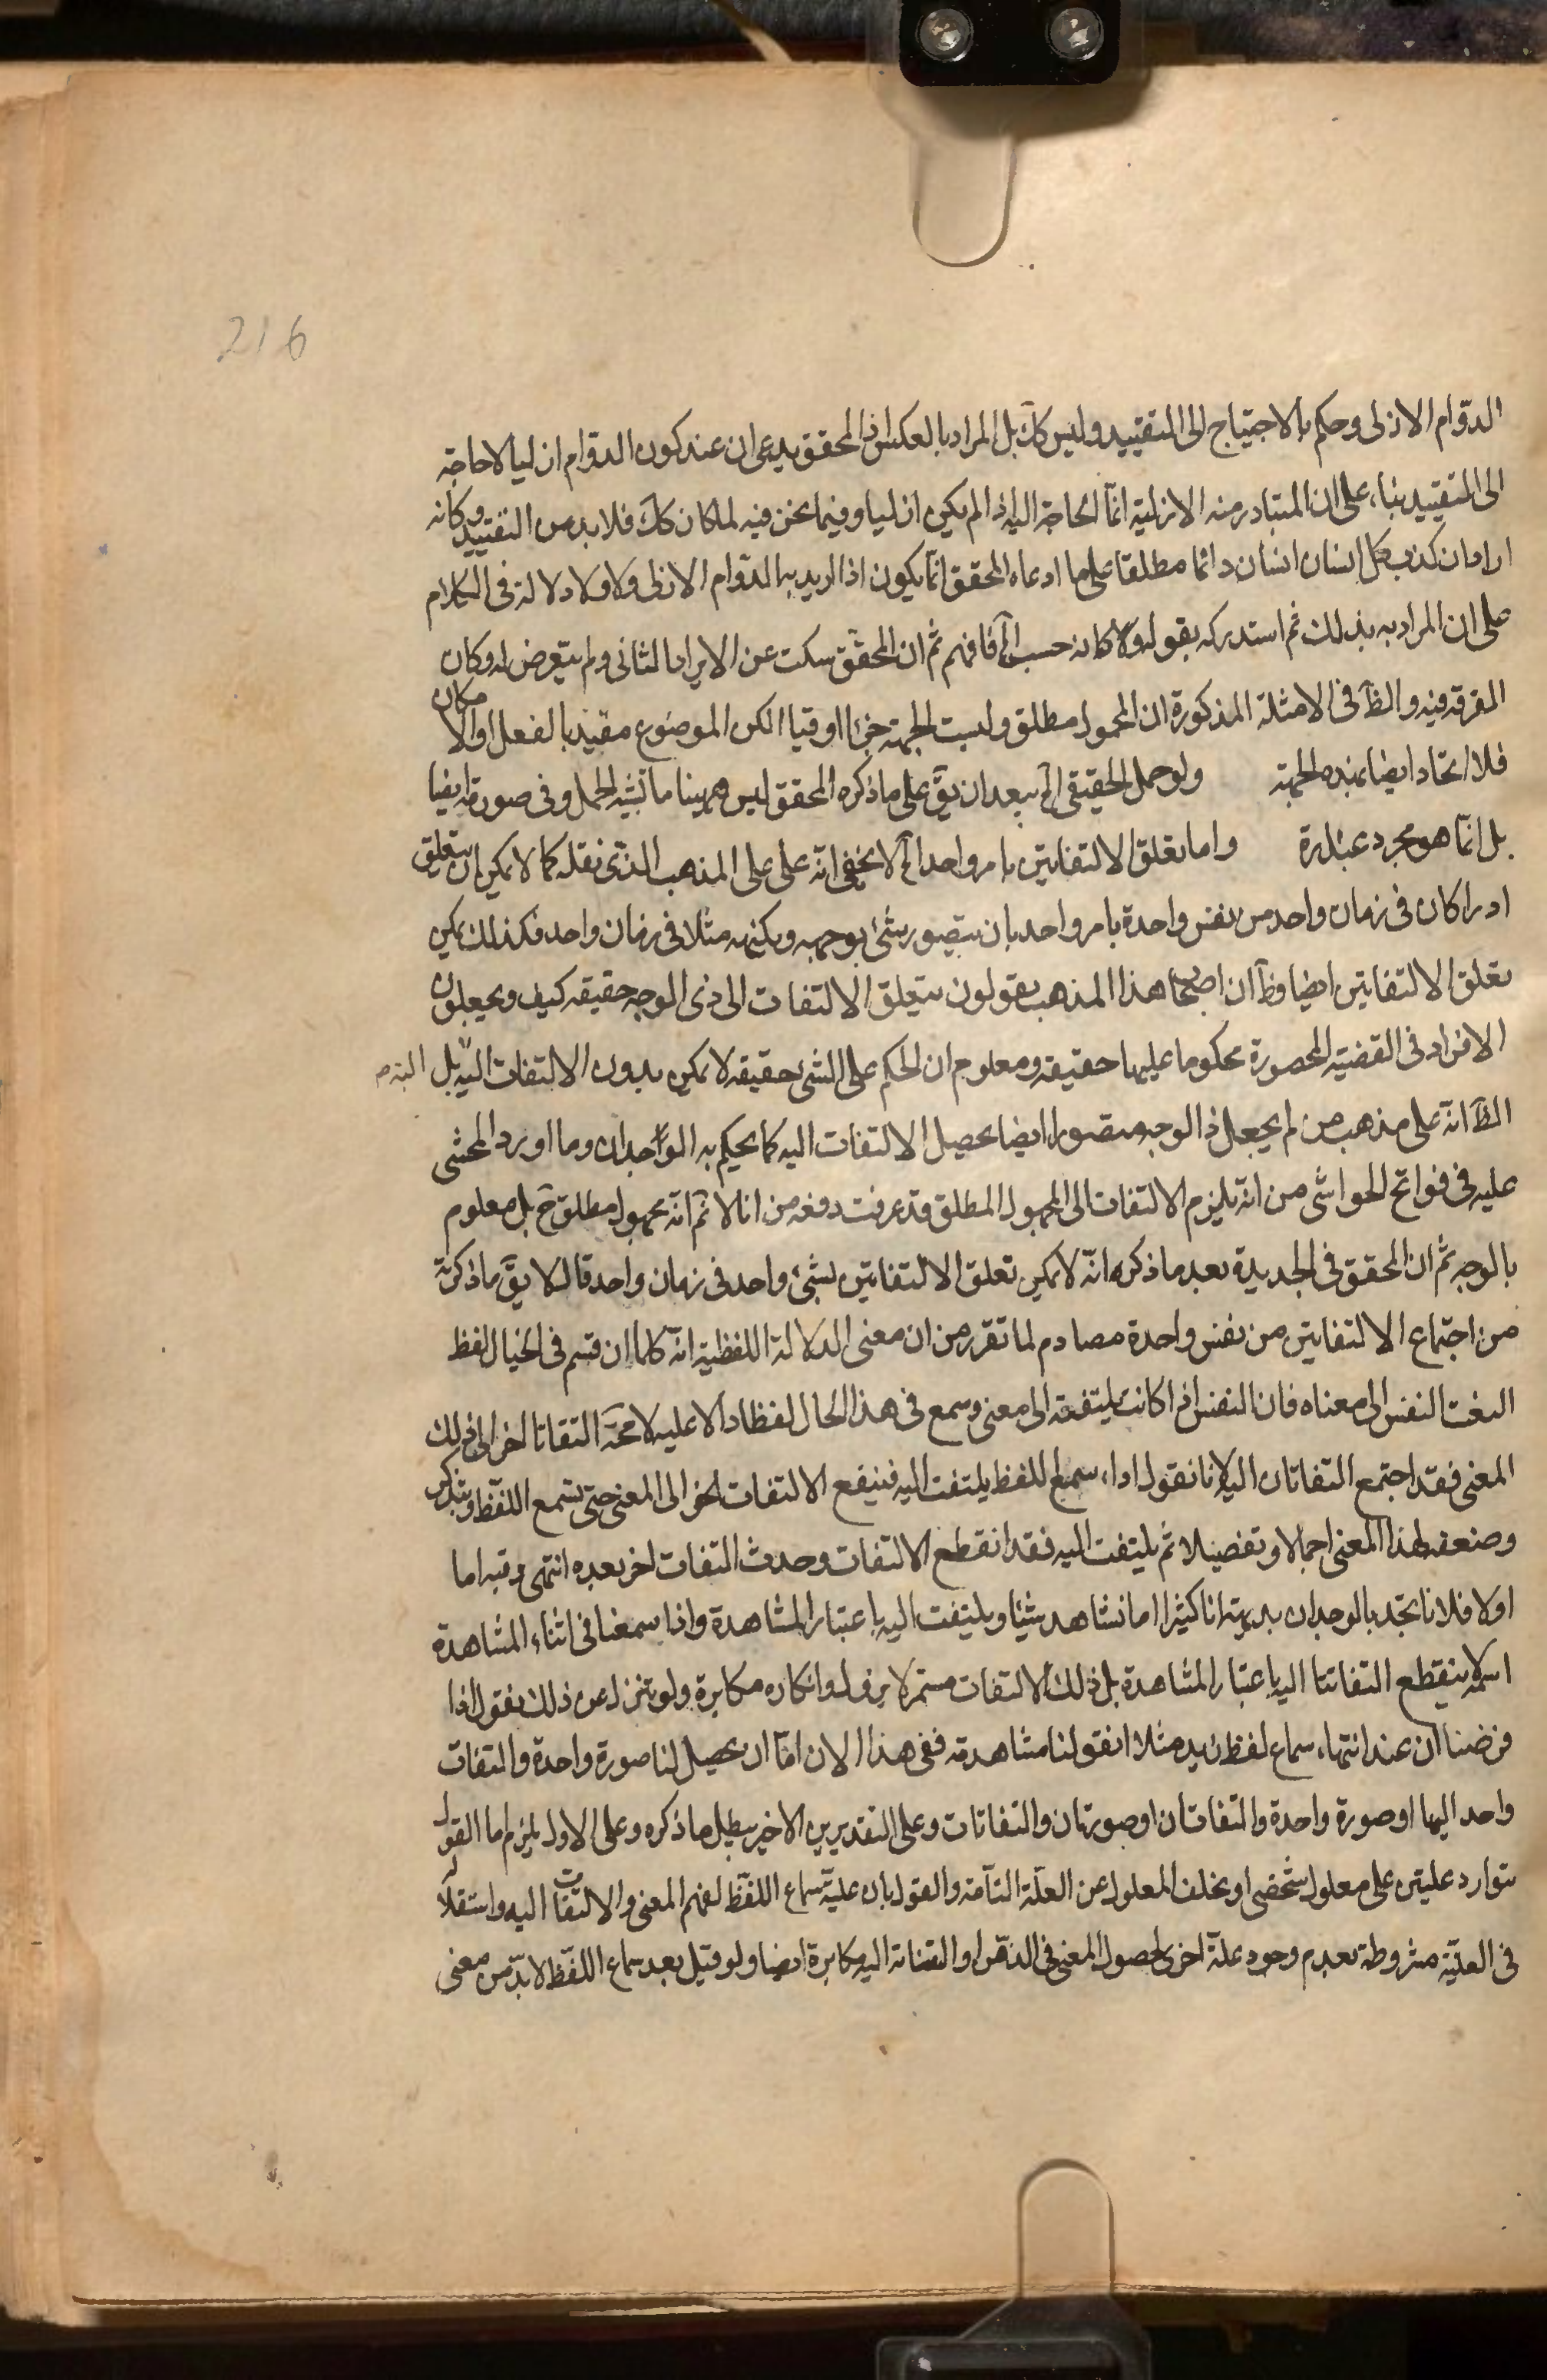 216
الدوام الازلى وحكم بالاحتياج الى التقييد وليس كك بل المراد بالعكس اذ المحقق يدعى ان عند كون الدوام ازليا لا حاجة
الى التقييد بناء على ان المتبادر منه الازلية انما الحاجة اليه اذا لم يكن ازليا وفيما نحن فيه لما كان كك فلا بد من التقييد وكانه
اراد ان كذب كل انسان انسان دائما مطلقا على ما ادعاه المحقق انما يكون اذا اريد به الدوام الازلى ولا دلالة فى الكلام
على ان المراد به بذلك ثم استدركه بقوله ولا كانه حسب الخ فافهم ثم ان المحقق سكت عن الايراد الثانى ولم يتعرض له وكان
التفرقة فيه والظ فى الامثلة المذكورة ان المحمول مطلق وليست الجهة جزئا او قيدا لكن الموضوع مقيد بالفعل او الامكان
فلا اتحاد ايضا بهذه الجهة ولو حمل الحقيقى الخ يبعد ان يق على ما ذكره المحقق ليس ههينا ما يشبه الحمل وفى صورته ايضا
بل انما هو مجرد عبارة واما تعلق الالتفاتين بامر واحد الخ لا يخفى انه على على المذهب الذى نقله كما لا يمكن ان يتعلق
ادراكان فى زمان واحد من نفس واحدة بامر واحد بان يتصور شئ بوجهه وبكنهه مثلا فى زمان واحد فكذلك يمكن
تعلق الالتفاتين ايضا وظ ان اصحاب هذا المذهب يقولون يتعلق الالتفات الى ذى الوجه حقيقه كيف ويجعلون
الافراد فى القضية المحصورة محكوما عليها حقيقة ومعلوم ان الحكم على الشئ حقيقه لا يمكن بدون الالتفات اليه بل
الظ انه على مذهب من لم يجعل ذا الوجه متصورا ايضا يحصل الالتفات اليه كما يحكم به الوجدان وما اورد المحشى
عليه فى فواتح الحواشى من انه يلزم الالتفات الى المجهول المطلق قد عرفت دفعه من انا لا نم انه مجهول مطلق ح بل معلوم
بالوجه ثم ان المحقق فى الجديدة بعد ما ذكره انه لا يمكن تعلق الالتفاتين بشئ واحد فى زمان واحد قال لا يق ما ذكرته
من اجتماع الالتفاتين من نفس واحدة مصادم لما تقرر من ان معنى الدلالة اللفظية انه كلما ارتسم فى الخيال لفظ
التفت النفس الى معناه فان النفس اذا كانت ملتفتة الى معنى وسمع فى هذا الحال لفظا دالا عليه لا محة التفاتا اخر الى ذلك
المعنى فقد اجتمع التفاتان اليه لانا نقول سماع اللفظ يلتفت اليه فينقطع الالتفات الى المعنى حتى تسمع اللفظ ويتذكر
وضعه لهذا المعنى اجمالا وتفصيلا ثم يلتفت اليه فقد انقطع الالتفات وحدث التفات اخر بعده انتهى وفيه اما
اولا فلانا نجد بالوجدان بديهة انا كثيرا ما نشاهد شيئا ويلتفت اليه باعتبار المشاهدة واذا سمعنا فى اثناء المشاهدة
اسمه لا ينقطع التفاتنا اليه باعتبار المشاهدة بل ذلك الالتفات مستمر لا يزول وانكاره مكابرة ولو تنزل عن ذلك نقول اذا
فرضنا ان عند انتهاء سماع لفظ زيد مثلا اتفق لنا مشاهدته ففى هذا الان اما ان يحصل لنا صورة واحدة والتفات
واحد اليها او صورة واحدة والتفاتان او صورتان والتفاتات وعلى التقديرين الاخير يبطل ما ذكره وعلى الاول يلزم اما القول
بتوارد علتين على معلول شخصى او تخلف المعلول عن العلة التامة والقول بان علية سماع اللفظ لفهم المعنى والالتفات اليه واستقلاله
فى العلية مشروطة بعدم وجود علة اخرى لحصول المعنى فى الذهن او التفاته اليه مكابرة ايضا ولو قيل بعد سماع اللفظ لا بد من معنى